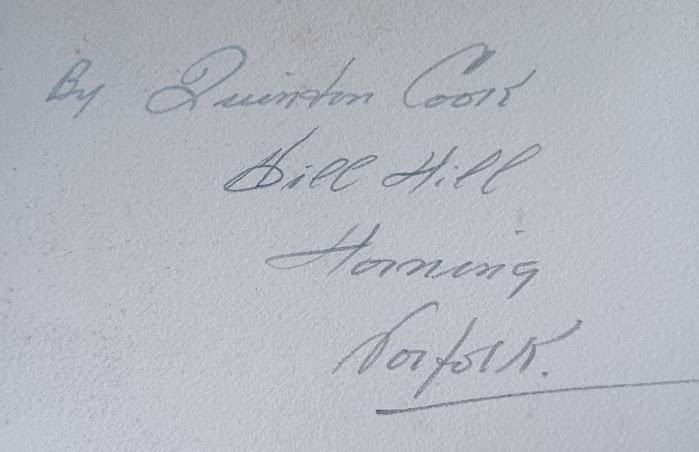 By Quinton Cook
Hill
Horning
Norfolk.